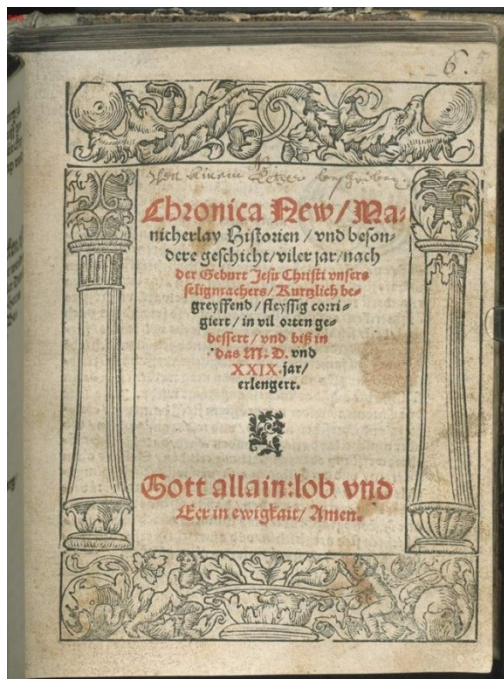 6.
Von Einem Ketzer beschriben.
Chronica New/Ma-
nicherlay Historien/vnd beson-
dere geschicht/viler jar/nach
der Geburt Jesu Christi vnsers
seligmachers/Kurtzlich be-
greyffend/fleyssig corri-
giert/in vil orten ge-
bessert/vnd biß in
das M. D. vnd
XXIX. jar/
erlengert.
Gott allain: lob vnd
Eer in ewigkait/Amen.